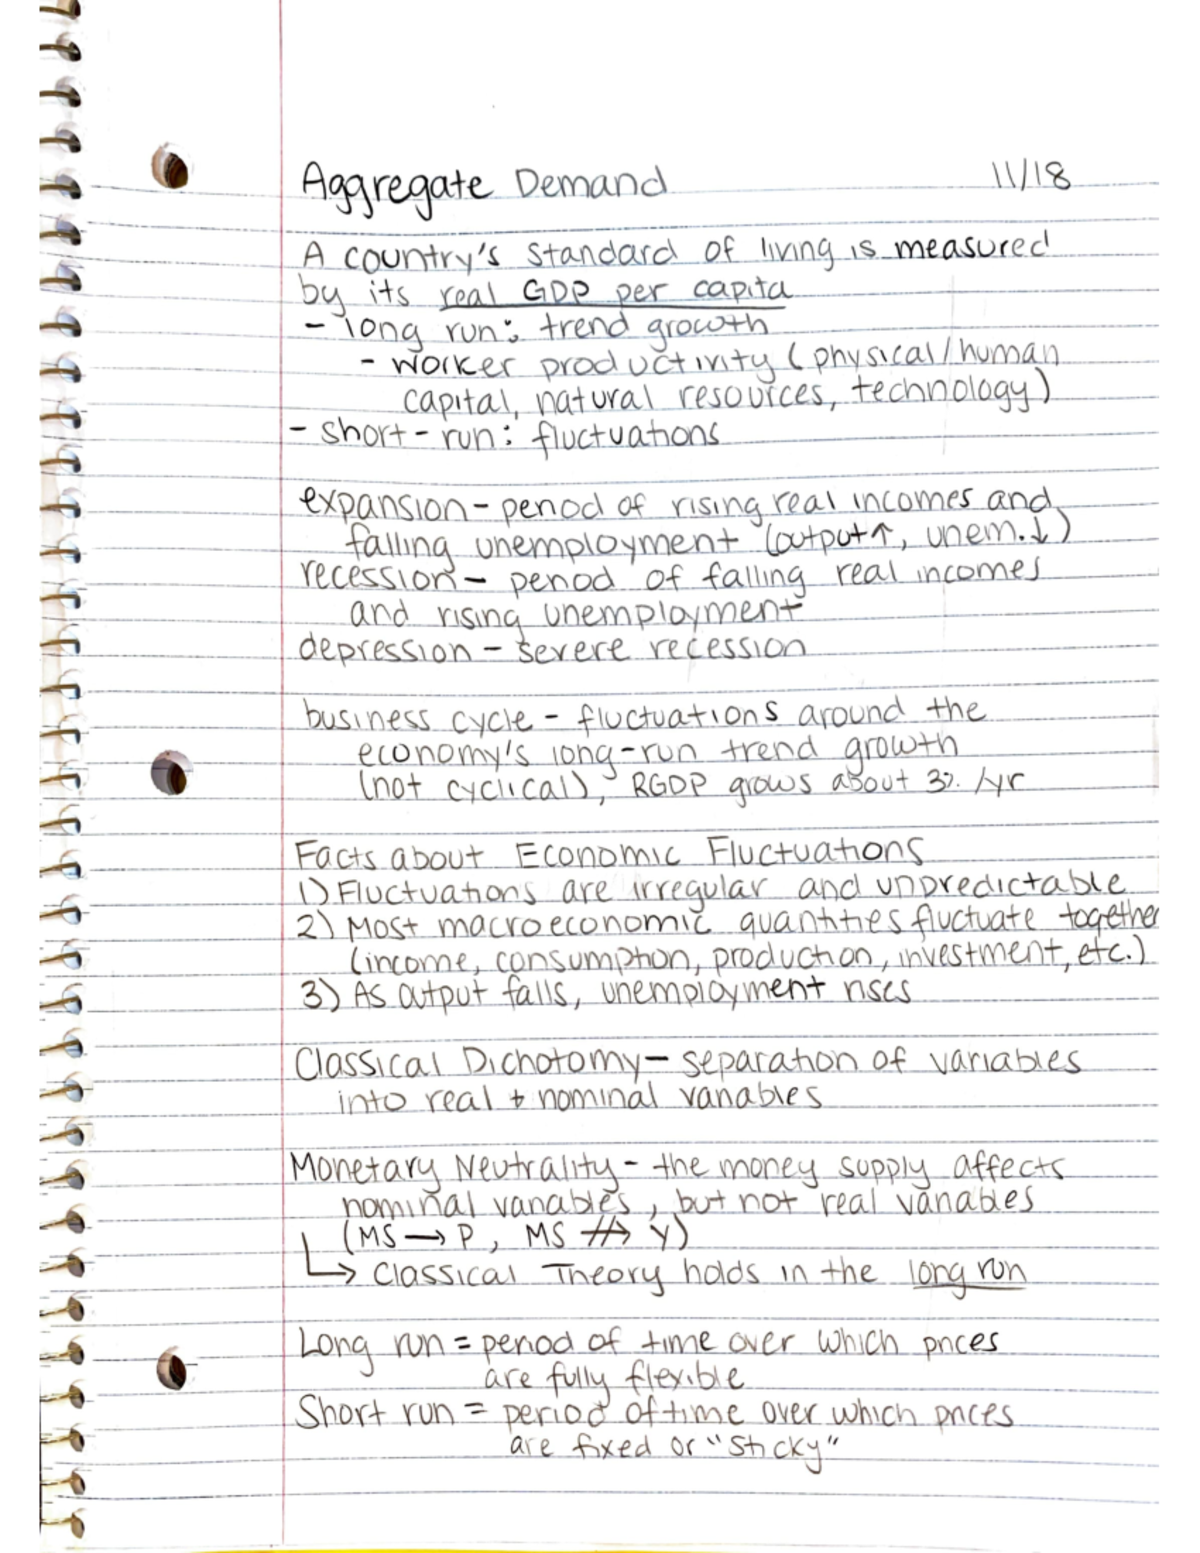 Aggregate Demand 11/18
A country's standard of living is measured
by its real GDP per capita
- long run: trend growth
- worker productivity (physical/human
capital, natural resources, technology)
- short-run: fluctuations
expansion - period of rising real incomes and
falling unemployment (output↑, unem.↓)
recession - period of falling real incomes
and rising unemployment
depression - severe recession
business cycle - fluctuations around the
economy's long-run trend growth
(not cyclical), RGDP grows about 3% /yr
Facts about Economic Fluctuations
1) Fluctuations are irregular and unpredictable
2) Most macroeconomic quantities fluctuate together
(income, consumption, production, investment, etc.)
3) As output falls, unemployment rises
Classical Dichotomy - separation of variables
into real + nominal variables
Monetary Neutrality - the money supply affects
nominal variables, but not real variables
(MS → P, MS ↛ Y)
↳ Classical Theory holds in the long run
Long run = period of time over which prices
are fully flexible
Short run = period of time over which prices
are fixed or "sticky"